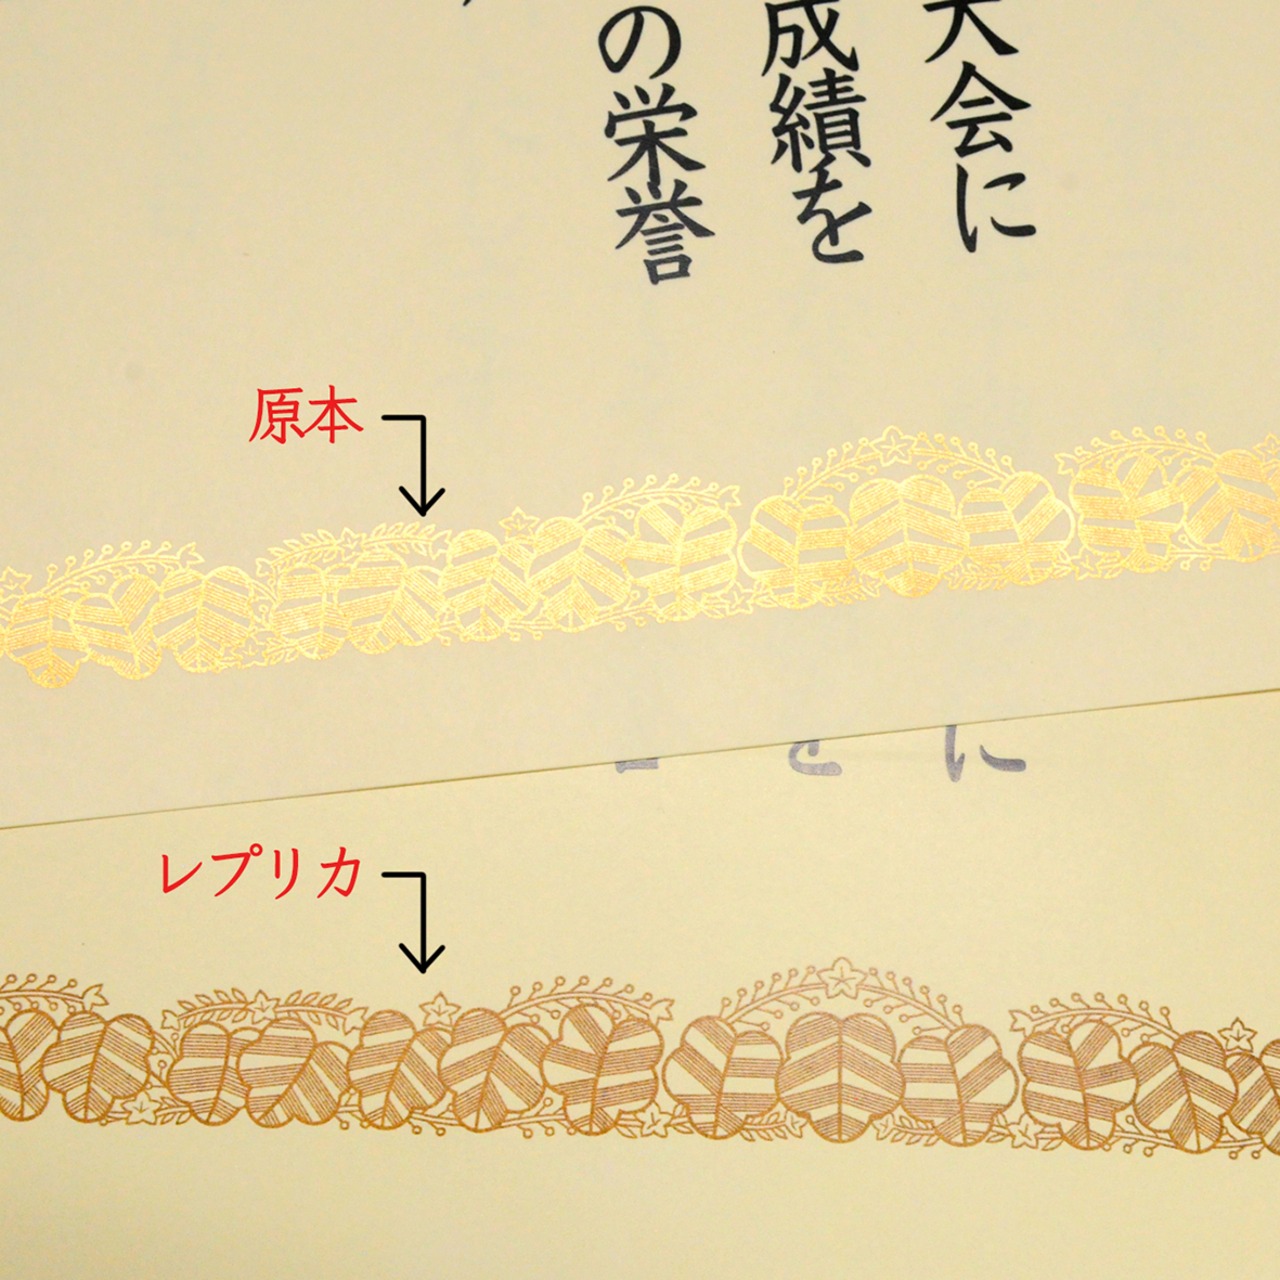 大会に
成績を
の栄誉
原本
レプリカ
に
を